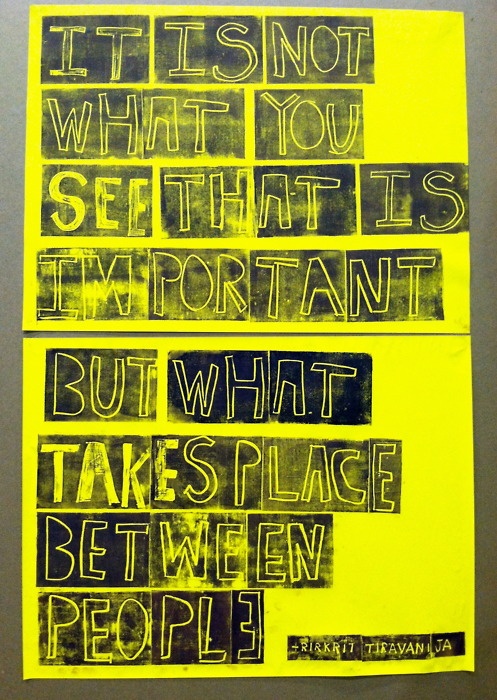 IT IS NOT
WHAT YOU
SEE THAT IS
IMPORTANT
BUT WHAT
TAKES PLACE
BETWEEN
PEOPLE
-RIRKRIT TIRAVANIJA